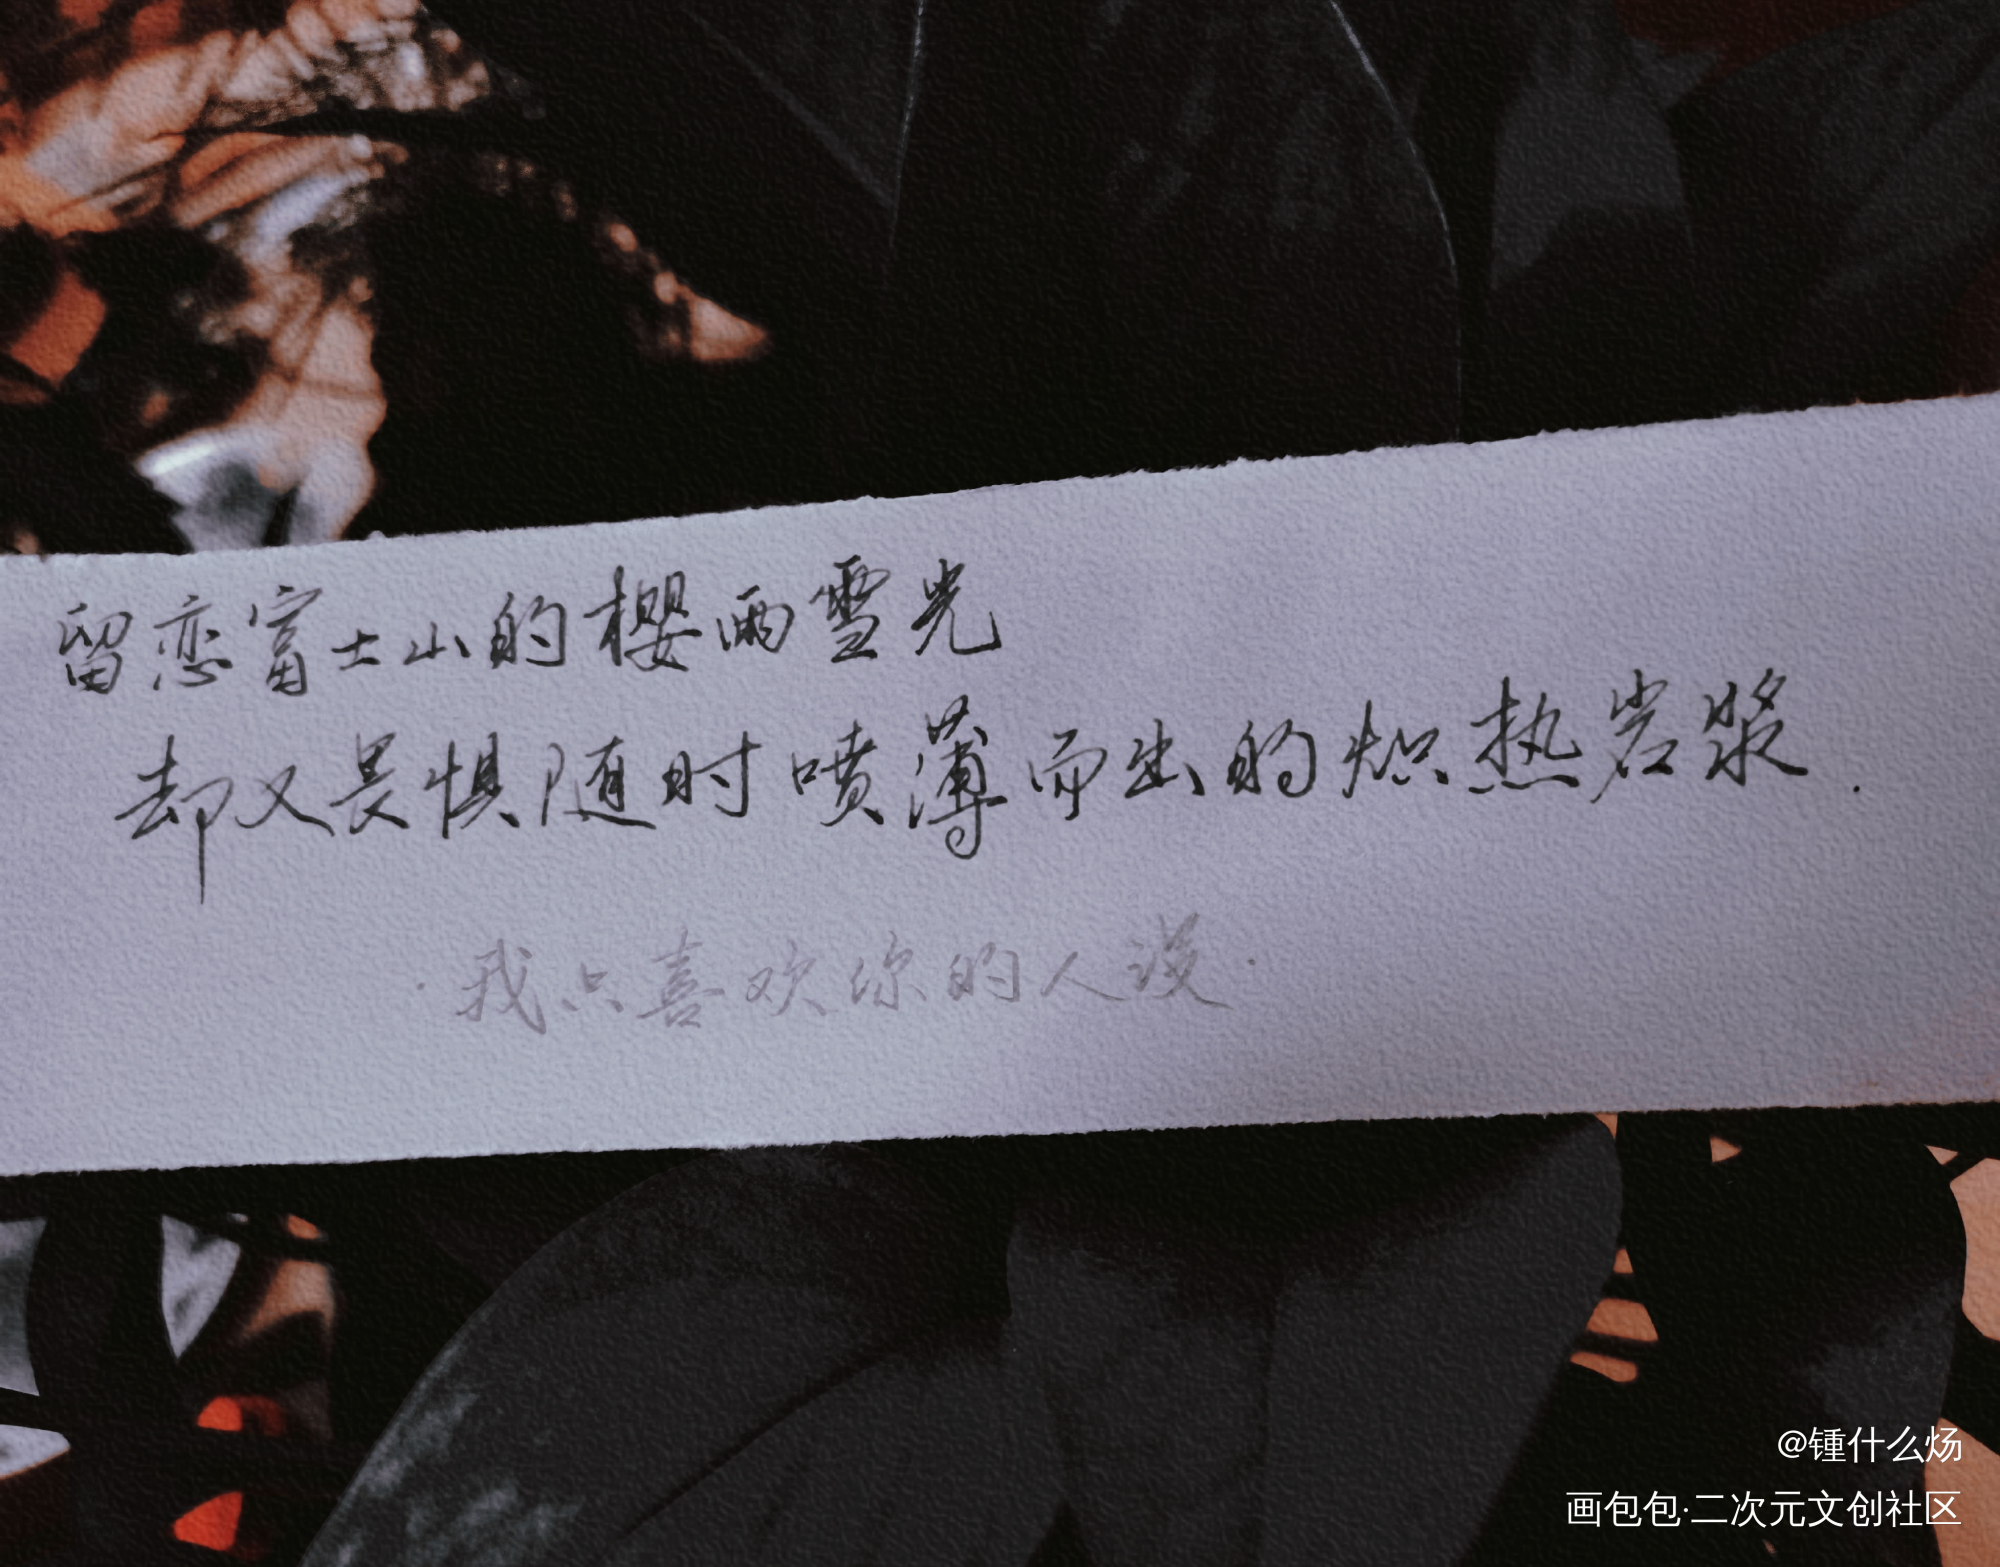 留恋富士山的樱雨雪光
却又畏惧随时喷薄而出的炽热岩浆.
·我只喜欢你的人设·
@锺什么炀
画包包·二次元文创社区